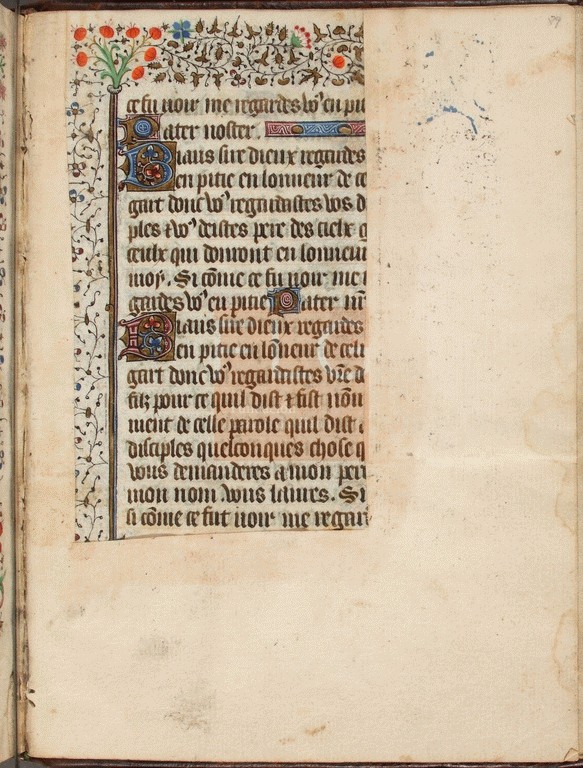 ce fu uoir me regardes voꝰ en pi
Pater noster.
Biaus sire dieux regardes
en pitie en lonneur de ce
gart donc voꝰ regardastes vos d
ples ⁊ voꝰ deistes pere des cielx
ceulx qui dorront en lonneur
moy. Si cōme ce fu uoir me
gardes voꝰ en pitie Pater nr̄
Biaus sire dieux regardes
en pitie en lōneur de celi
gart donc voꝰ regardastes vr̄e
filz pour ce quil dist ⁊ fist
ment de celle parole quil dist
disciples quelconques chose q
vous demanderes a mon per
mon nom vous laures. Si
si cōme ce fut uoir me regar